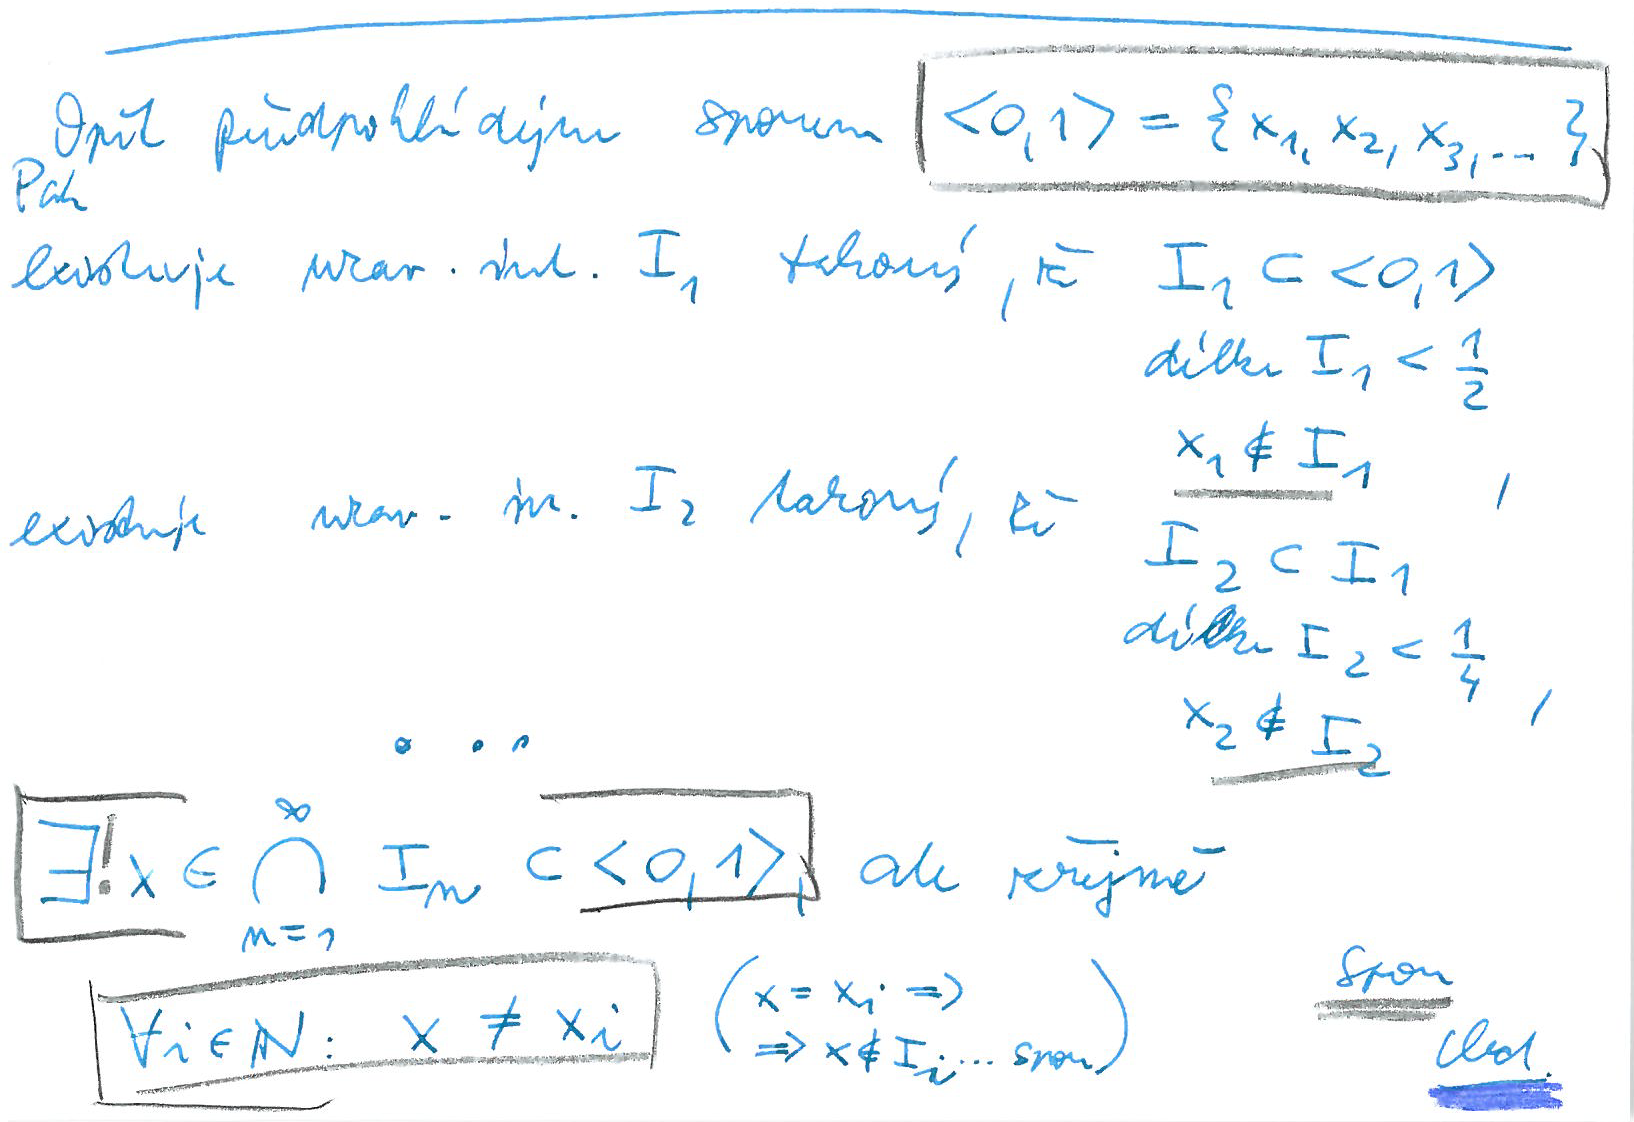 Opět předpokládejme sporem <0,1> = {x₁, x₂, x₃, ... }
Pak
existuje uzav. int. I₁ takový, že I₁ ⊂ <0,1>
délka I₁ < 1/2
x₁ ∉ I₁ ,
existuje uzav. in. I₂ takový, že
I₂ ⊂ I₁
délka I₂ < 1/4
x₂ ∉ I₂ ,
...
∃! x ∈ ⋂_{n=1}^{∞} Iₙ ⊂ <0,1>, ale zřejmě
∀i∈N: x ≠ xᵢ (x = xᵢ ⇒
⇒ x ∉ Iᵢ ... spor)
Spor
cbd.